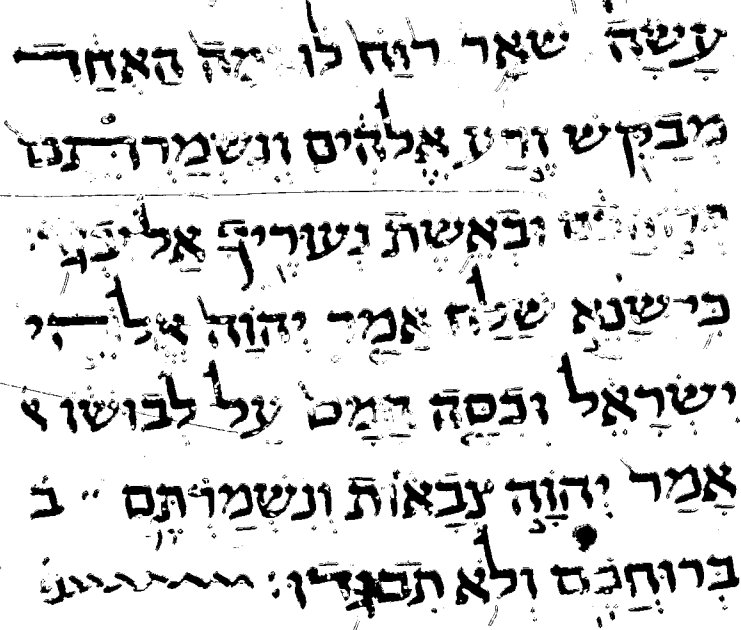 עָשָׂה וּשְׁאָר רוּחַ לוֹ וּמָה הָאֶחָד
מְבַקֵּשׁ זֶרַע אֱלֹהִים וְנִשְׁמַרְתֶּם
בְּרוּחֲכֶם וּבְאֵשֶׁת נְעוּרֶיךָ אַל יִבְגֹּד
כִּי שָׂנֵא שַׁלַּח אָמַר יְהוָה אֱלֹהֵי
יִשְׂרָאֵל וְכִסָּה חָמָס עַל לְבוּשׁוֹ
אָמַר יְהוָה צְבָאוֹת וְנִשְׁמַרְתֶּם ב
בְּרוּחֲכֶם וְלֹא תִבְגֹּדוּ׃